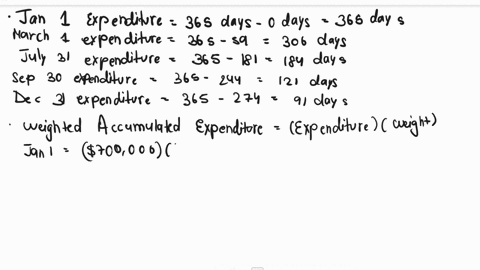 · Jan 1 Expenditure = 365 days - 0 days = 365 days
March 1 expenditure = 365 - 59 = 306 days
July 31 expenditure = 365 - 181 = 184 days
Sep 30 expenditure = 365 - 244 = 121 days
Dec 31 expenditure = 365 - 274 = 91 days
· weighted Accumulated Expenditure = (Expenditure)(weight)
Jan 1 = ($700,000)(